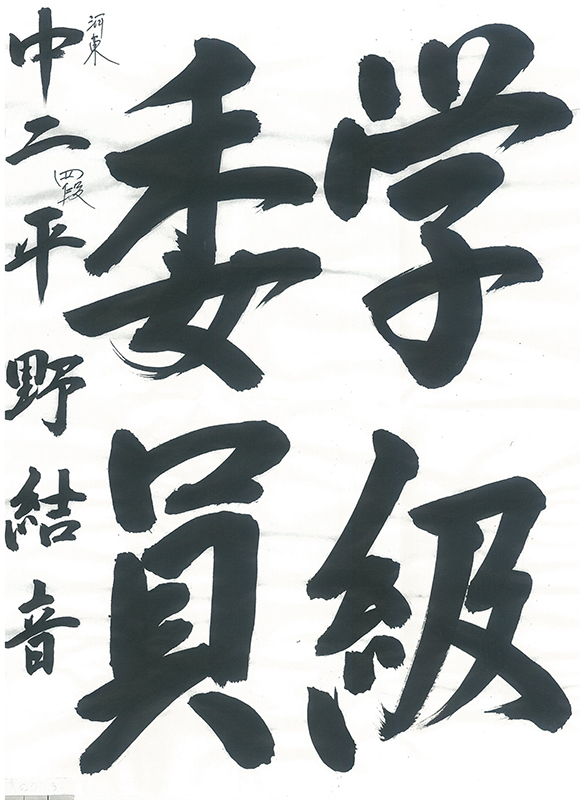 学級
委員
中二 平野結音
河東
四段